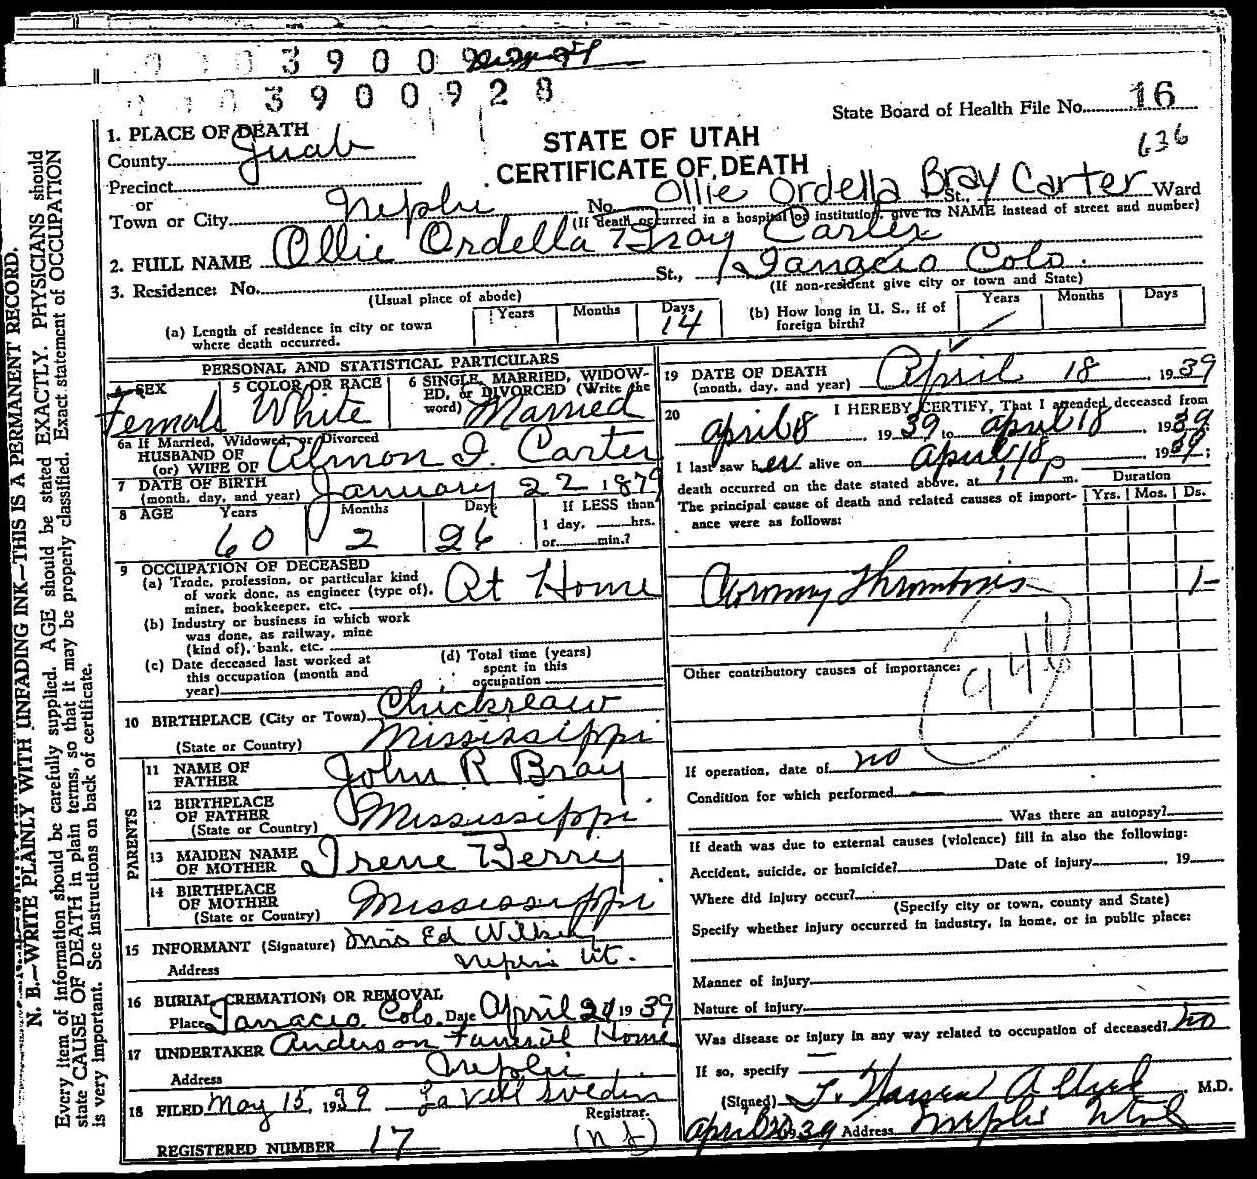 3 9 0 0 9
3 9 0 0 9 2 8
State Board of Health File No. 16
636
1. PLACE OF DEATH
County Juab
STATE OF UTAH
CERTIFICATE OF DEATH
Precinct
or
Town or City Nephi No. Ollie Ordella Bray Carter St., Ward
(If death occurred in a hospital or institution, give its NAME instead of street and number)
2. FULL NAME Ollie Ordella Bray Carter
3. Residence: No. St., Ignacio Colo.
(Usual place of abode) (If non-resident give city or town and State)
(a) Length of residence in city or town where death occurred. Years Months Days 14
(b) How long in U. S., if of foreign birth? Years Months Days
PERSONAL AND STATISTICAL PARTICULARS
4 SEX Female
5 COLOR OR RACE White
6 SINGLE, MARRIED, WIDOWED, or DIVORCED (Write the word) Married
6a If Married, Widowed, or Divorced
HUSBAND OF
(or) WIFE OF Almon I. Carter
7 DATE OF BIRTH
(month, day, and year) January 22 1879
8 AGE Years 60 Months 2 Days 26 If LESS than 1 day, hrs. or min.?
9 OCCUPATION OF DECEASED
(a) Trade, profession, or particular kind
of work done, as engineer (type of),
miner, bookkeeper, etc. At Home
(b) Industry or business in which work
was done, as railway, mine
(kind of), bank, etc.
(c) Date deceased last worked at
this occupation (month and
year)
(d) Total time (years)
spent in this
occupation
10 BIRTHPLACE (City or Town) Chicksaw
(State or Country) Mississippi
PARENTS
11 NAME OF
FATHER John R Bray
12 BIRTHPLACE
OF FATHER
(State or Country) Mississippi
13 MAIDEN NAME
OF MOTHER Irene Berry
14 BIRTHPLACE
OF MOTHER
(State or Country) Mississippi
15 INFORMANT (Signature) Mrs Ed
Address Nephi Ut.
16 BURIAL, CREMATION, OR REMOVAL
Place Ignacio Colo. Date April 1939
17 UNDERTAKER Anderson Funeral Home
Address Nephi
18 FILED May 15, 1939 La Vell Sweden
Registrar.
REGISTERED NUMBER 17
19 DATE OF DEATH
(month, day, and year) April 18, 1939
20 I HEREBY CERTIFY, That I attended deceased from
April 18, 1939 to April 18, 1939;
I last saw her alive on April 18, 1939;
death occurred on the date stated above, at 11 p m.
The principal cause of death and related causes of importance were as follows:
Duration
Yrs. Mos. Ds.
Coronary Thrombosis 1-
Other contributory causes of importance:
94b
If operation, date of no
Condition for which performed
Was there an autopsy?
If death was due to external causes (violence) fill in also the following:
Accident, suicide, or homicide? Date of injury , 19
Where did injury occur?
(Specify city or town, county and State)
Specify whether injury occurred in industry, in home, or in public place:
Manner of injury
Nature of injury
Was disease or injury in any way related to occupation of deceased? No
If so, specify
(Signed) M.D.
April 20 1939 Address Nephi Utah
N. B.—WRITE PLAINLY WITH UNFADING INK—THIS IS A PERMANENT RECORD.
Every item of information should be carefully supplied. AGE should be stated EXACTLY. PHYSICIANS should
state CAUSE OF DEATH in plain terms, so that it may be properly classified. Exact statement of OCCUPATION
is very important. See instructions on back of certificate.